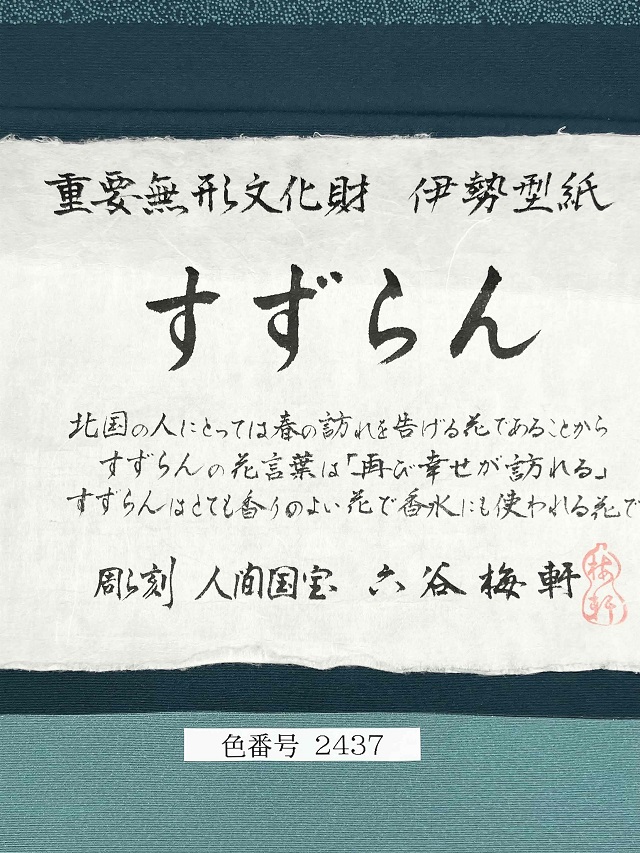 重要無形文化財 伊勢型紙
すずらん
北国の人にとっては春の訪れを告げる花であることから
すずらんの花言葉は「再び幸せが訪れる」
すずらんはとても香りのよい花で香水にも使われる花で
彫刻 人間国宝 六谷梅軒
梅軒
色番号 2437